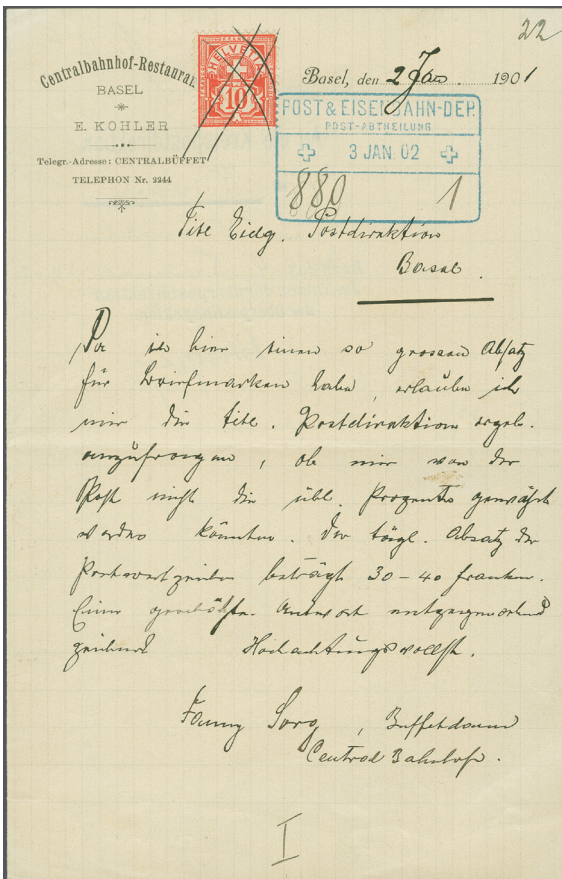 22
Centralbahnhof-Restaurat
BASEL
E. KOHLER
Telegr.-Adresse: CENTRALBÜFFET
TELEPHON Nr. 2244
HELVETIA
10
Basel, den 2 Jan 1901
POST & EISENBAHN-DEP.
POST-ABTHEILUNG
3 JAN. 02
880 1
Titl Eidg. Postdirektion
Basel.
Da ich hier einen so grossen Absatz
für Briefmarken habe, erlaube ich
mir die titl. Postdirektion ergeb.
anzufragen, ob mir von der
Post nicht die übl. Prozente gewährt
werden könnten. Der tägl. Absatz der
Postwertzeichen beträgt 30-40 Franken.
Einer geschätzten Antwort entgegensehend
zeichnet Hochachtungsvollst.
Fanny Sorg, Buffetdame
Central Bahnhof.
I